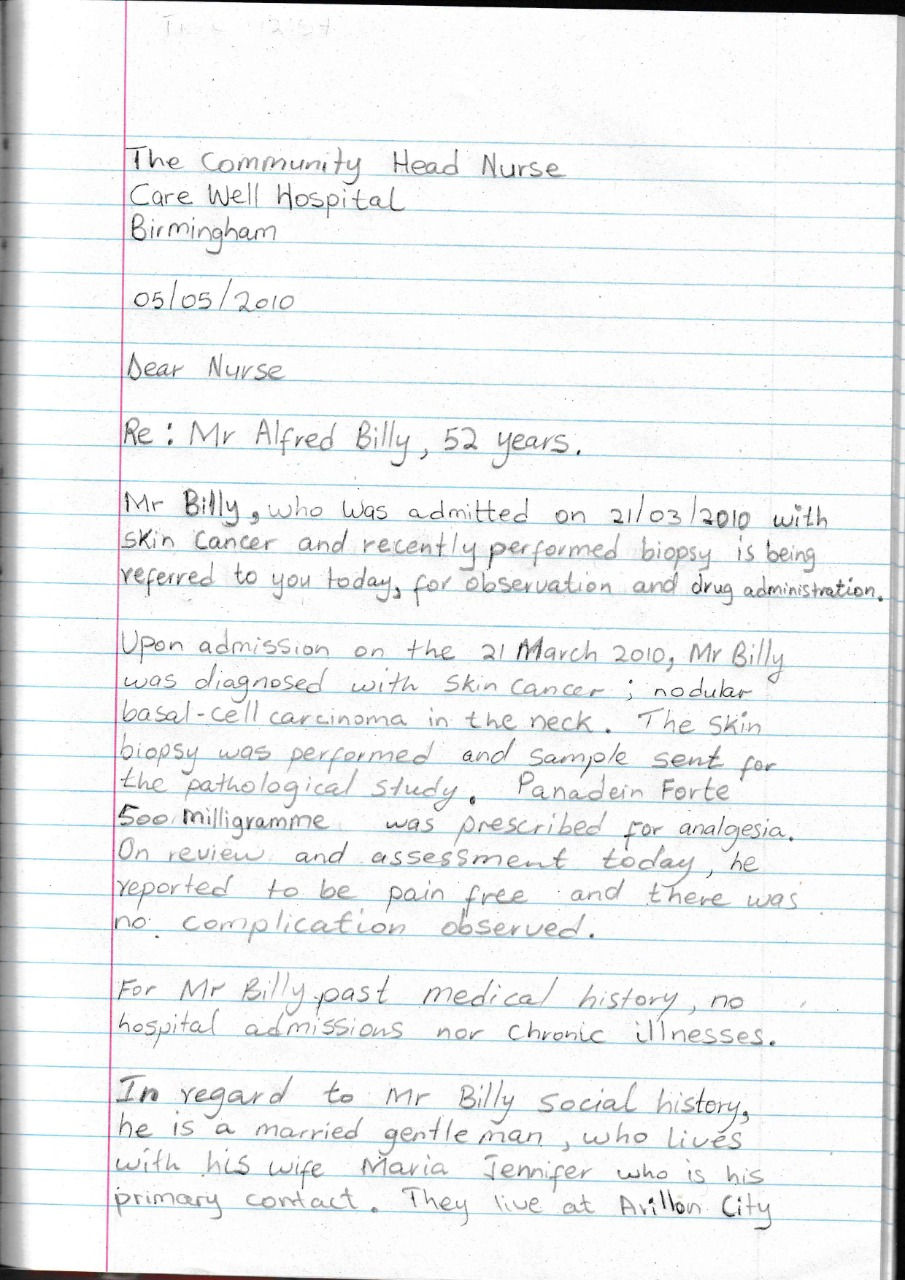 The Community Head Nurse
Care Well Hospital
Birmingham
05/05/2010
Dear Nurse
Re : Mr Alfred Billy, 52 years.
Mr Billy, who was admitted on 21/03/2010 with
skin cancer and recently performed biopsy is being
referred to you today, for observation and drug administration.
Upon admission on the 21 March 2010, Mr Billy
was diagnosed with skin cancer ; nodular
basal-cell carcinoma in the neck. The skin
biopsy was performed and sample sent for
the pathological study. Panadein Forte
500 milligramme was prescribed for analgesia.
On review and assessment today, he
reported to be pain free and there was
no complication observed.
For Mr Billy past medical history, no
hospital admissions nor chronic illnesses.
In regard to Mr Billy social history,
he is a married gentleman, who lives
with his wife Maria Jennifer who is his
primary contact. They live at Avillon City